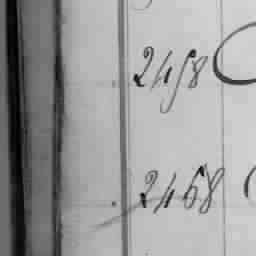 2458
2468